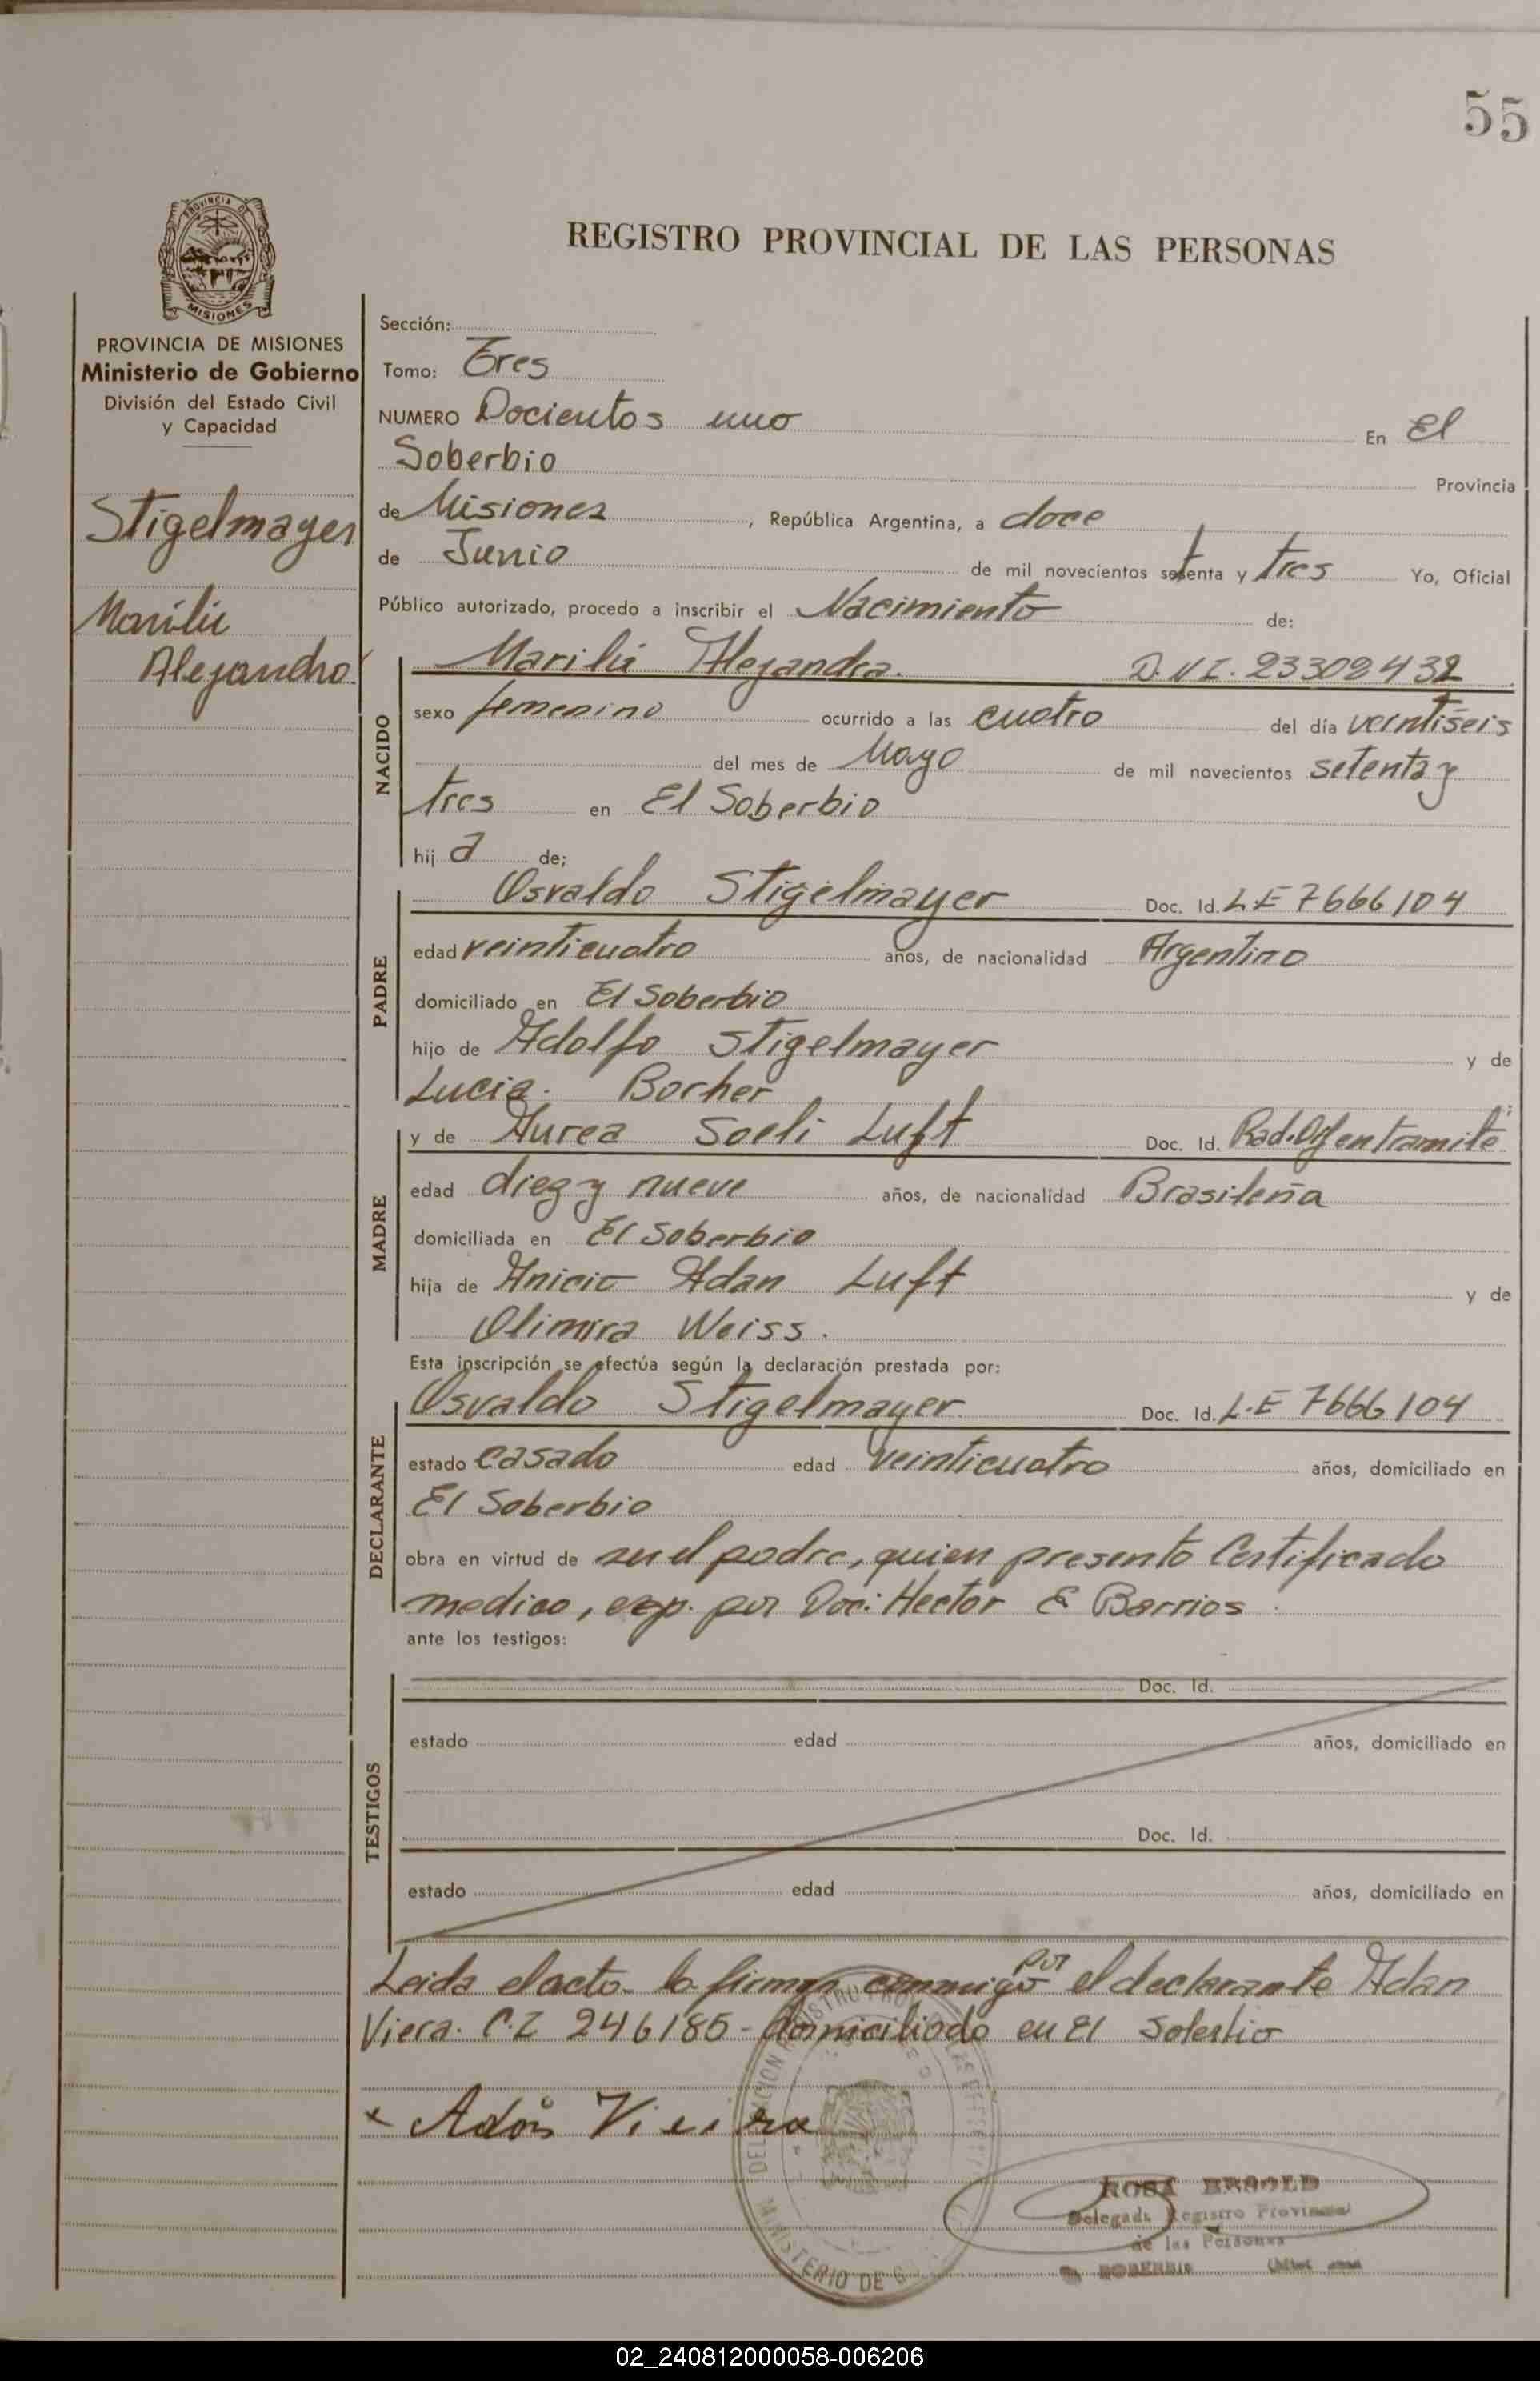 55
REGISTRO PROVINCIAL DE LAS PERSONAS
PROVINCIA DE MISIONES
Ministerio de Gobierno
División del Estado Civil
y Capacidad
Stigelmayer
Marilú
Alejandra
Sección:
Tomo: Tres
NUMERO Docientos uno En El
Soberbio Provincia
de Misiones, República Argentina, a doce
de Junio de mil novecientos setenta y tres Yo, Oficial
Público autorizado, procedo a inscribir el Nacimiento de:
NACIDO
Marilú Alejandra. D.N.I. 23302432
sexo femenino ocurrido a las cuatro del día veintiseis
del mes de Mayo de mil novecientos setenta y
tres en El Soberbio
hij a de;
PADRE
Osvaldo Stigelmayer Doc. Id. L.E 7666104
edad veinticuatro años, de nacionalidad Argentino
domiciliado en El Soberbio
hijo de Adolfo Stigelmayer y de
Lucia. Bocher
MADRE
y de Aurea Soeli Luft Doc. Id. Rad. en tramite
edad diez y nueve años, de nacionalidad Brasileña
domiciliada en El Soberbio
hija de Anicio Adan Luft y de
Olimira Weiss.
Esta inscripción se efectúa según la declaración prestada por:
DECLARANTE
Osvaldo Stigelmayer Doc. Id. L.E 7666104
estado casado edad veinticuatro años, domiciliado en
El Soberbio
obra en virtud de ser el padre, quien presento Certificado
medico, exp. por Doc: Hector E Barrios.
ante los testigos:
TESTIGOS
Doc. Id.
estado edad años, domiciliado en
Doc. Id.
estado edad años, domiciliado en
Leida el acto. lo firman conmigo por el declarante Adan
Viera. C.I 246185 - domiciliado en El Soberbio
x Adan Vieira
ROSA
Delegada Registro Provincial
de las Personas
SOBERBIO
MINISTERIO DE
02_240812000058-006206